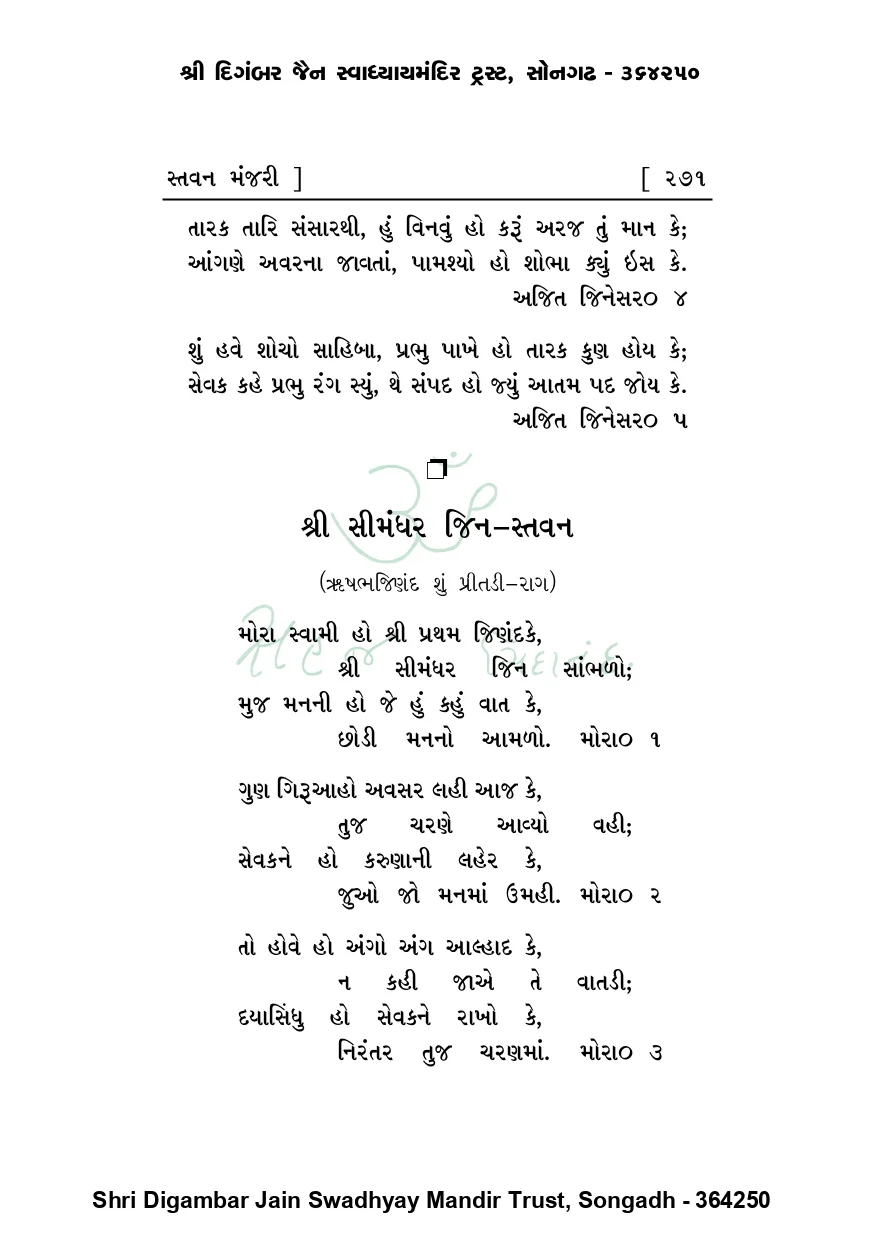 શ્રી દિગંબર જૈન સ્વાધ્યાયમંદિર ટ્રસ્ટ, સોનગઢ - ૩૬૪૨૫૦
સ્તવન મંજરી ] [ ૨૭૧
તારક તારિ સંસારથી, હું વિનવું હો કરૂં અરજ તું માન કે;
આંગણે અવરના જાવતાં, પામશ્યો હો શોભા ક્યું ઇસ કે.
અજિત જિનેસર૦ ૪
શું હવે શોચો સાહિબા, પ્રભુ પાખે હો તારક કુણ હોય કે;
સેવક કહે પ્રભુ રંગ સ્યું, થે સંપદ હો જ્યું આતમ પદ જોય કે.
અજિત જિનેસર૦ ૫
ૐ
શ્રી સીમંધર જિન–સ્તવન
(ઋષભજિણંદ શું પ્રીતડી–રાગ)
મોરા સ્વામી હો શ્રી પ્રથમ જિણંદકે,
સહજ ચિદાનંદ
શ્રી સીમંધર જિન સાંભળો;
મુજ મનની હો જે હું કહું વાત કે,
છોડી મનનો આમળો. મોરા૦ ૧
ગુણ ગિરૂઆહો અવસર લહી આજ કે,
તુજ ચરણે આવ્યો વહી;
સેવકને હો કરુણાની લહેર કે,
જુઓ જો મનમાં ઉમહી. મોરા૦ ૨
તો હોવે હો અંગો અંગ આલ્હાદ કે,
ન કહી જાએ તે વાતડી;
દયાસિંધુ હો સેવકને રાખો કે,
નિરંતર તુજ ચરણમાં. મોરા૦ ૩
Shri Digambar Jain Swadhyay Mandir Trust, Songadh - 364250